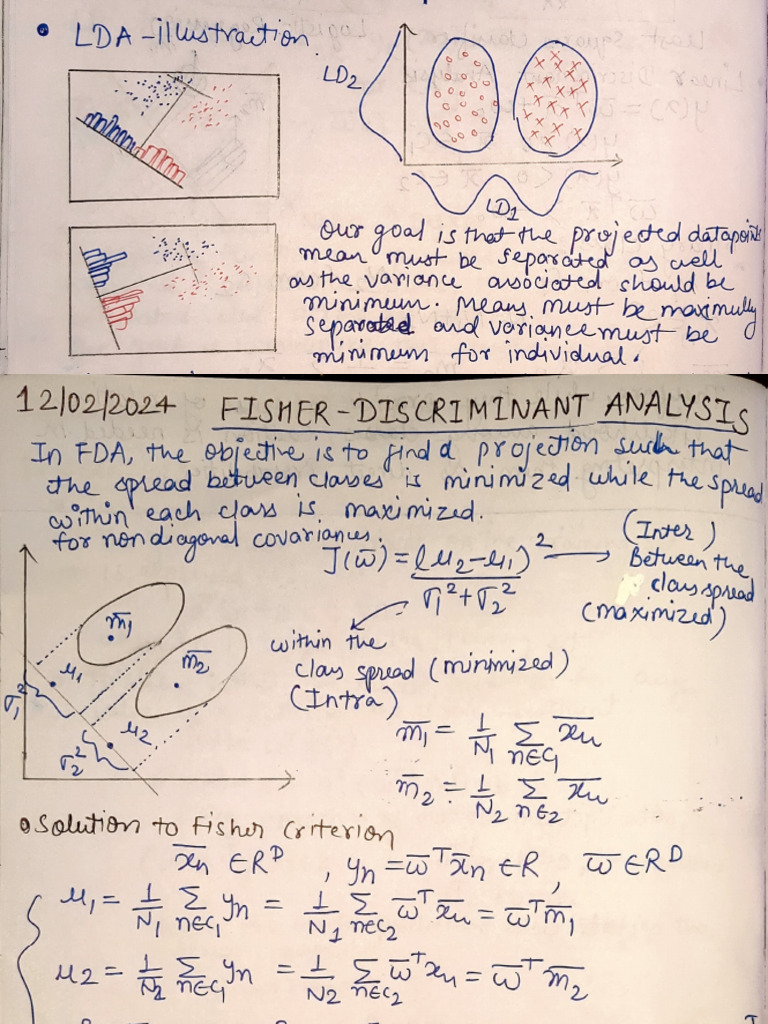 LDA - illustraction.
LD2
LD1
Our goal is that the projected datapoints
mean must be separated as well
as the variance associated should be
minimum. Means must be maximully
separated and variance must be
minimum for individual.
12/02/2024 FISHER-DISCRIMINANT ANALYSIS
In FDA, the objective is to find a projection such that
the spread between classes is minimized while the spread
within each class is maximized.
for nondiagonal covariances.
J(w̅) = (μ2-μ1)² / σ1²+σ2²
(Inter)
Between the
class spread
(maximized)
within the
class spread (minimized)
(Intra)
m̅1
m̅2
μ1
μ2
σ1²
σ2²
m̅1 = 1/N1 Σ n∈C1 x̅n
m̅2 = 1/N2 Σ n∈2 x̅n
Solution to Fisher Criterion
x̅n ∈R^D , yn = w̅^T x̅n ∈ R , w̅ ∈R^D
μ1 = 1/N1 Σ n∈C1 yn = 1/N1 Σ n∈C2 w̅^T x̅n = w̅^T m̅1
μ2 = 1/N2 Σ n∈C1 yn = 1/N2 Σ n∈C2 w̅^T xn = w̅^T m̅2